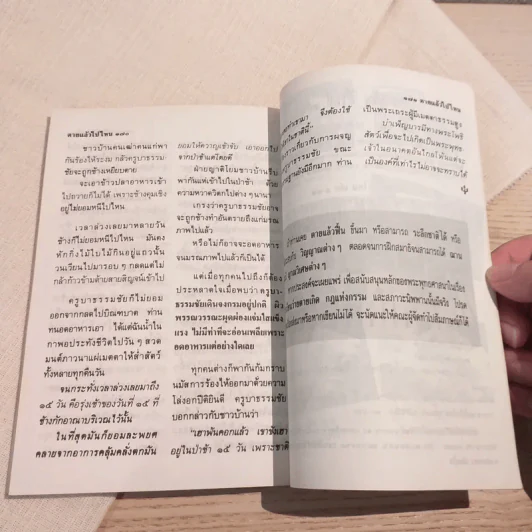 ตายแล้วไปไหน ๑๗๐
ชาวบ้านคนเฒ่าคนแก่พา
กันร้องไห้ระงม กลัวครูบาธรรม
ชัยจะถูกช้างเหยียบตาย
จะเอาข้าวปลาอาหารเข้า
ไปถวายก็ไม่ได้ เพราะช้างคุมเชิง
อยู่ไม่ยอมหนีไปไหน
เวลาล่วงเลยมาหลายวัน
ช้างก็ไม่ยอมหนีไปไหน มันคง
หักกิ่งไม้ใบไม้กินอยู่แถวนั้น
วนเวียนไปมารอบ ๆ กลดแต่ไม่
กล้าก้าวข้ามด้ายสายสิญจน์เข้าไป
ครูบาธรรมชัยก็ไม่ยอม
ออกจากกลดไปบิณฑบาต ท่าน
ทนอดอาหารเอา ได้แต่ฉันน้ำใน
กาพอประทังชีวิตไปวัน ๆ สวด
มนต์ภาวนาแผ่เมตตาให้ล่ำสัตว์
ทั้งหลายทุกคืนวัน
จนกระทั่งเวลาล่วงเลยมาถึง
๑๕ วัน คือรุ่งเช้าของวันที่ ๑๕ ที่
ช้างกักอาณาบริเวณไว้นั้น
ในที่สุดมันก็ยอมละพยศ
คลายจากอาการคลุ้มคลั่งตกมัน
ยอมให้ควาญเข้าจับ เอาออกไป
จากป่าช้าแต่โดยดี
ฝ่ายญาติโยมชาวบ้านรีบ
พากันแห่เข้าไปในป่าช้า ด้วย
ความหวาดวิตกไปต่าง ๆ นานา
เกรงว่าครูบาธรรมชัยอาจ
จะถูกช้างทำอันตรายถึงแก่มรณ
ภาพไปแล้ว
หรือไม่ก็อาจจะอดอาหาร
จนมรณภาพไปแล้วก็เป็นได้
แต่เมื่อทุกคนไปถึงก็ต้อง
ประหลาดใจเมื่อพบว่า ครูบา-
ธรรมชัยเดินจงกรมอยู่ปกติ ผิว
พรรณวรรณะผุดผ่องแจ่มใสแข็ง
แรง ไม่มีท่าที่จะอ่อนเพลียเพราะ
อดอาหารแต่อย่างใดเลย
ทุกคนต่างก็พากันก้มกราบ
นมัสการร้องไห้ออกมาด้วยความ
โล่งอกปีติยินดี ครูบาธรรมชัย
บอกกล่าวกับชาวบ้านว่า
อยู่ในป่าช้า ๑๕ วัน เพราะชาติ
๑๗๑ ตายแล้วไปไหน
จึงต้องใช้
เกี่ยวกับการผจญ
ครูบาธรรมชัย ขณะ
ยังมีอีกมาก ท่าน
เป็นพระเถระผู้มีเมตตาธรรมสูง
บำเพ็ญบารมีทางพระโพธิ
สัตว์เพื่อจะไปเป็นพระพุทธ
เจ้าในอนาคตอันไกลโพ้นแต่จะ
เป็นองค์ที่เท่าไรไม่อาจจะทราบได้
ตายแล้วฟื้น ขึ้นมา หรือสามารถ ระลึกชาติได้ หรือ
วิญญาณต่าง ๆ ตลอดจนการฝึกสมาธิจนสามารถได้ ฌาน
วิเศษต่าง ๆ
ประสงค์จะเผยแพร่ เพื่อสนับสนุนหลักของพระพุทธศาสนาในเรื่อง
ตายเกิด กฎแห่งกรรม และสภาวะนิพพานนั้นมีจริง โปรด
มาหรือหากเขียนไม่ได้ จะนัดแนะให้คณะผู้จัดทำไปสัมภาษณ์ก็ได้